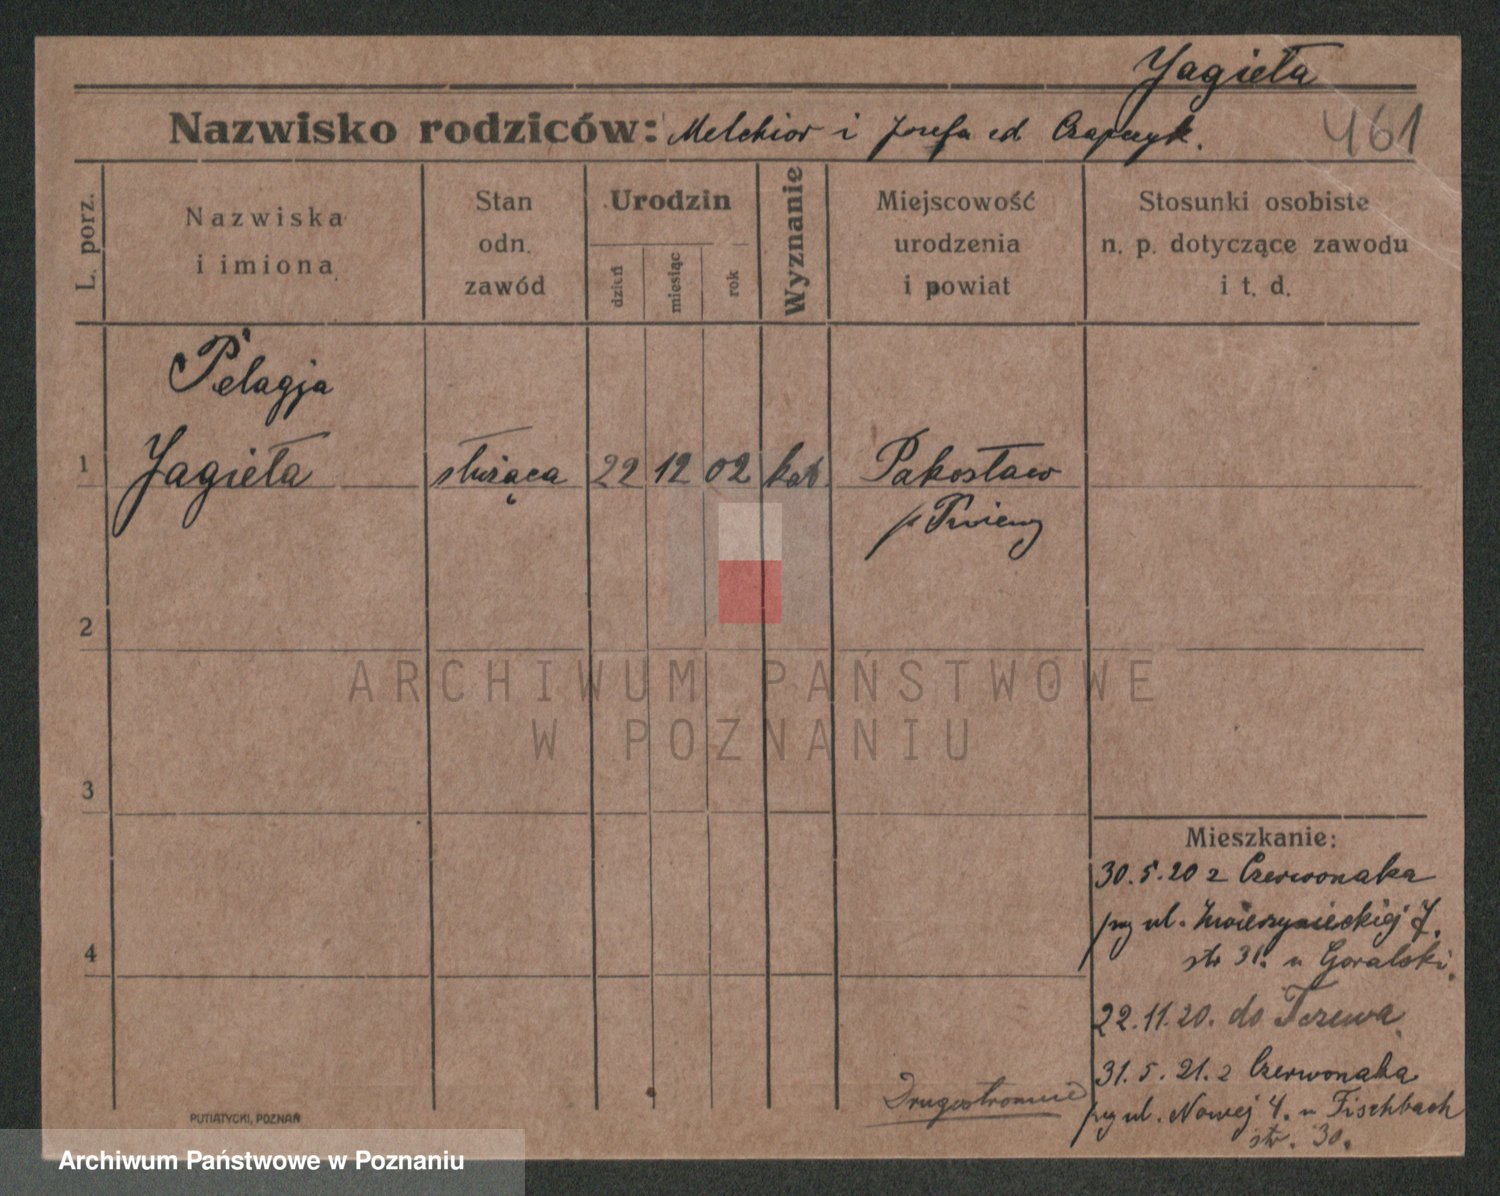 Jagieła
Nazwisko rodziców: Melchior i Józefa cd. Czapczyk.
461
L. porz.
Nazwiska
i imiona
Stan
odn.
zawód
Urodzin
dzień
miesiąc
rok
Wyznanie
Miejscowość
urodzenia
i powiat
Stosunki osobiste
n. p. dotyczące zawodu
i t. d.
Pelagja
1 Jagieła służąca 22 12 02 kat. Pakosław
2
3
4
ARCHIWUM PAŃSTWOWE
W POZNANIU
Mieszkanie:
30.5.20 z Czerwonaka
przy ul. Zwierzynieckiej 7.
str 31. u Goralski.
22.11.20. do Tczewa
31.5.21. z Czerwonaka
przy ul. Nowej 4. u Fischbach
str. 30.
Drugostronnie
PUTIATYCKI, POZNAŃ
Archiwum Państwowe w Poznaniu